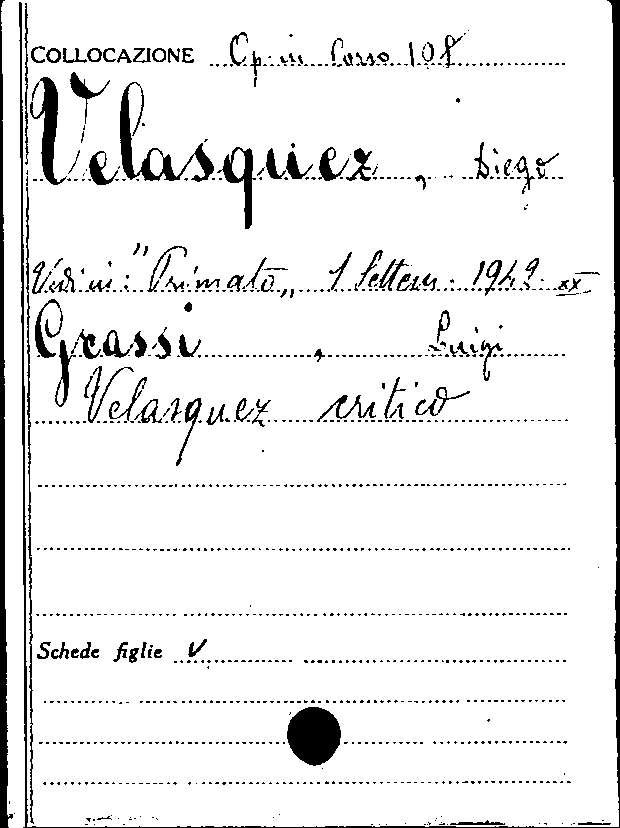 COLLOCAZIONE Op. in Corso 108
Velasquez, Diego
Vedi in: "Primato„ 1 Settem. 1942. XX
Grassi, Luigi
Velasquez critico
Schede figlie V